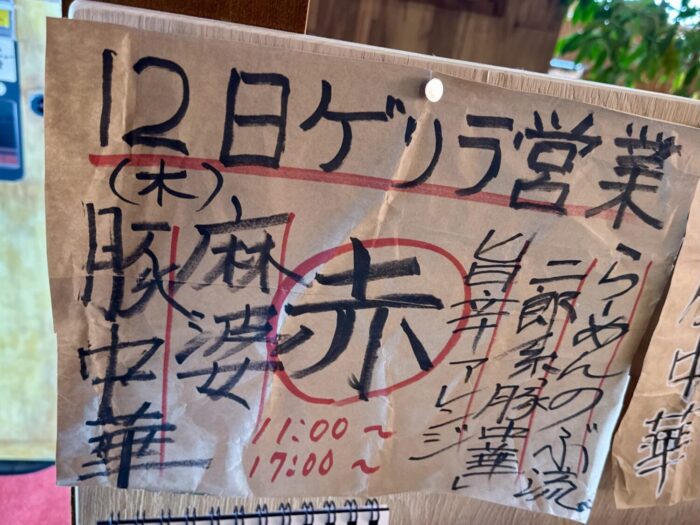 12日ゲリラ営業
(木)
らーめんのぶ流。
二郎系豚中華」
旨辛アレンジ
赤
麻婆
豚中華
11:00〜
17:00〜
中華